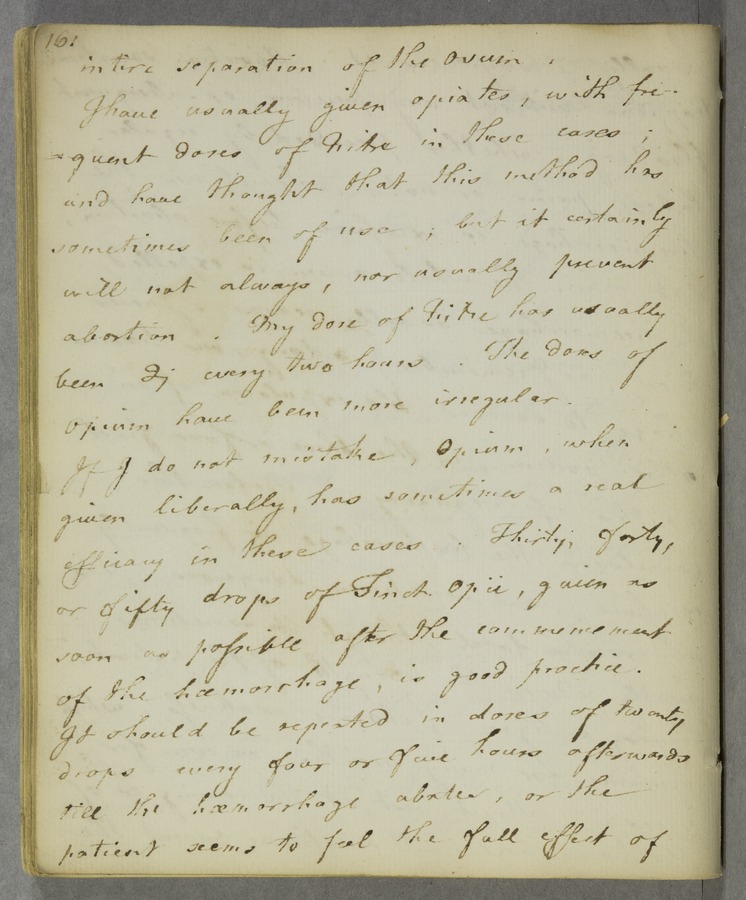 161
intire separation of the ovum.
I have usually given opiates, with fre-
=quent doses of Nitre in these cases;
and have thought that this method has
sometimes been of use; but it certainly
will not always, nor usually prevent
abortion. My dose of Nitre has usually
been ℈j every two hours. The doses of
opium have been more irregular.
If I do not mistake, Opium, when
given liberally, has sometimes a real
efficacy in these cases. Thirty, forty,
or fifty drops of Tinct. opii, given as
soon as possible after the commencement
of the hæmorrhage, is good practice.
It should be repeated in doses of twenty
drops every four or five hours afterwards
till the hæmorrhage abates, or the
patient seems to feel the full effect of